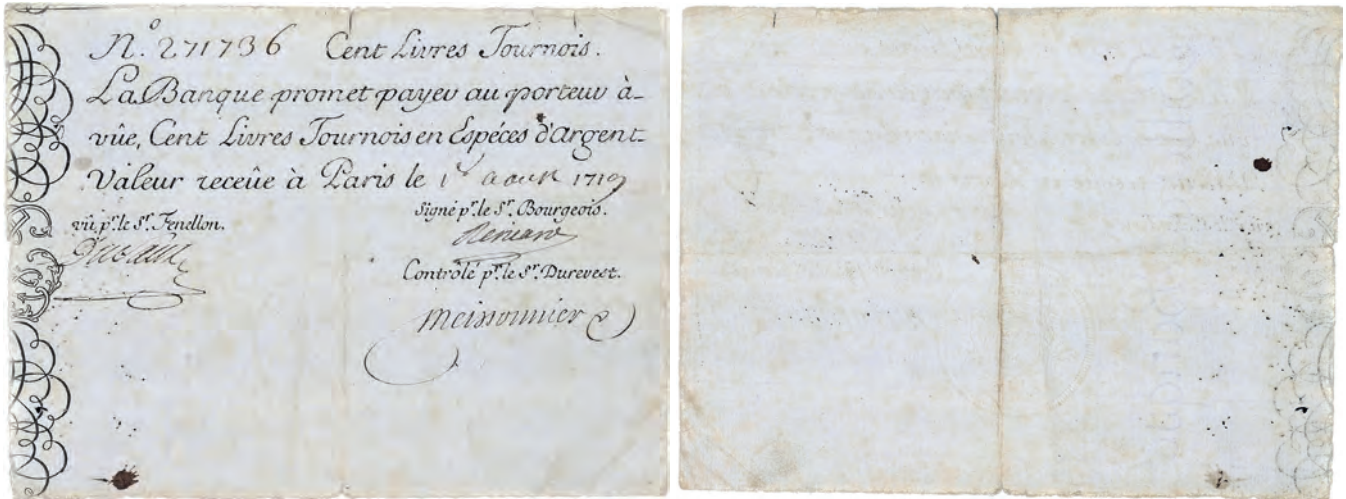 N.º 271736 Cent Livres Tournois.
La Banque promet payer au porteur à-
vûe, Cent Livres Tournois en Espéces d'Argent.
Valeur receüe à Paris le 1.er aoust 1719
vû, p.r le S.r Fenellon.
Signé p.r le S.r Bourgeois.
Contrôlé p.r le S.r Durevest.
Meissonnier